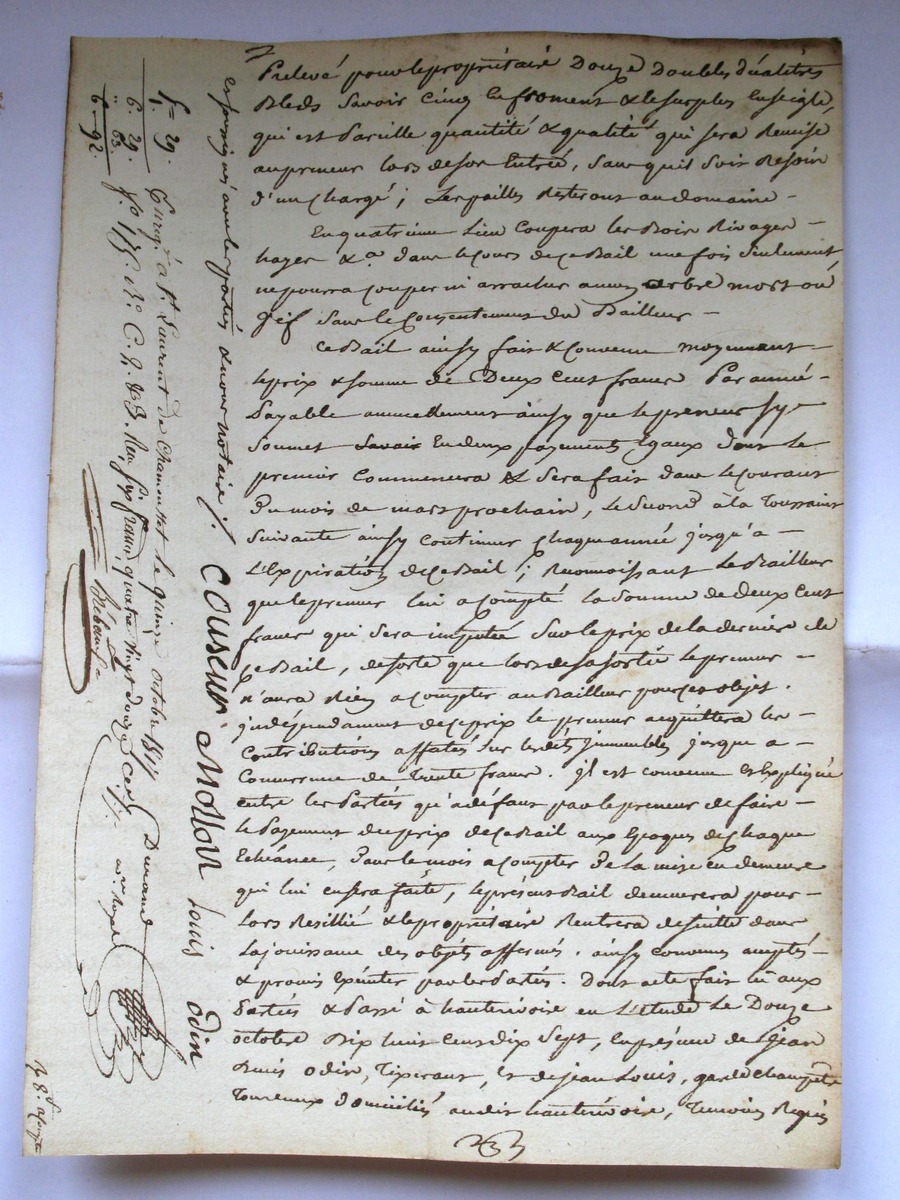 Prelevé pour le propriétaire Douze Doubles décalitres
Bleds Savoir Cinq en froment & le surplus En seigle,
qui est Pareille quantité & qualité qui sera Remise
au preneur lors de son Entrée, Sans quil Soit Besoin
d'un chargé ; Les pailles Resteront au domaine -
En quatrieme Lieu Coupera les Bois Rivages -
hayes &a dans le Cours de ce Bail une fois Seulement
ne pourra couper ni arracher aucun arbre mort ou
Vif Sans le Consentement du Bailleur -
Ce Bail ainsy fait & Convenu moyennant -
le prix & somme de Deux Cent francs Par année -
Payable annuellement ainsy que le preneur sy -
Soumet Savoir En deux payements Egaux dont le
premier Commencera & Sera fait dans le Courant
Du mois de mars prochain, le Second à la Toussaint
Suivante ainsy Continuer Chaque année jusqu'a -
L'Expiration de ce Bail ; Reconnoissant le Bailleur
que le preneur lui a Compté la Somme de Deux Cent
francs qui Sera imputée Sur le prix de la derniere de
Ce Bail, de sorte que lors de sa sortie le preneur -
n'aura Rien a Compter au Bailleur pour cet objet.
jndépendament de ce prix le preneur acquittera les -
Contributions affectés Sur les dts jmmeubles jusque a -
Concurrence de trente francs. jl est convenu & Expliqué
entre les Parties qu'a défaut par le preneur de faire -
le Payement du prix de ce Bail aux Epoques de chaque
Echéance, Dans le mois a Compter De la mise en demeure
qui lui en sera faite, le présent Bail demeurera pour -
Lors Resillié & le propriétaire Rentrera de suitte dans
La jouissance des objets affermés. ainsy convenu accepté -
& promis Exécuter par les Parties. Dont acte fait lû aux
Parties & Passé à hauterivoire en L'étude Le Douze
octobre Dix huit Cent dix Sept, En présence de Sr jean
Odin, Tixerant, Et de jean Louis, garde Champêtre
Tous deux Domiciliés au dit hauterivoire, Temoins Requis
& soussignés avec les parties & nous notaire ./.
Couseur Mollon Louis Odin
Enrgé à St Laurent de Chamousset le quinze octobre 1817
fo 175 Ro C. 2. & 3. Reçu six francs quatre vingt douze cent.
Durand
nre Royal
6. 29.
" 63.
6 - 92.